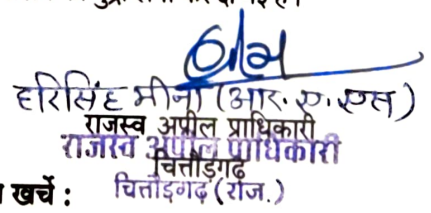 हरिसिंह मीना (आर.ए.एस)
राजस्व अपील प्राधिकारी
राजस्व अपील प्राधिकारी
चित्तौड़गढ़
खर्चे : चित्तौड़गढ़ (राज.)